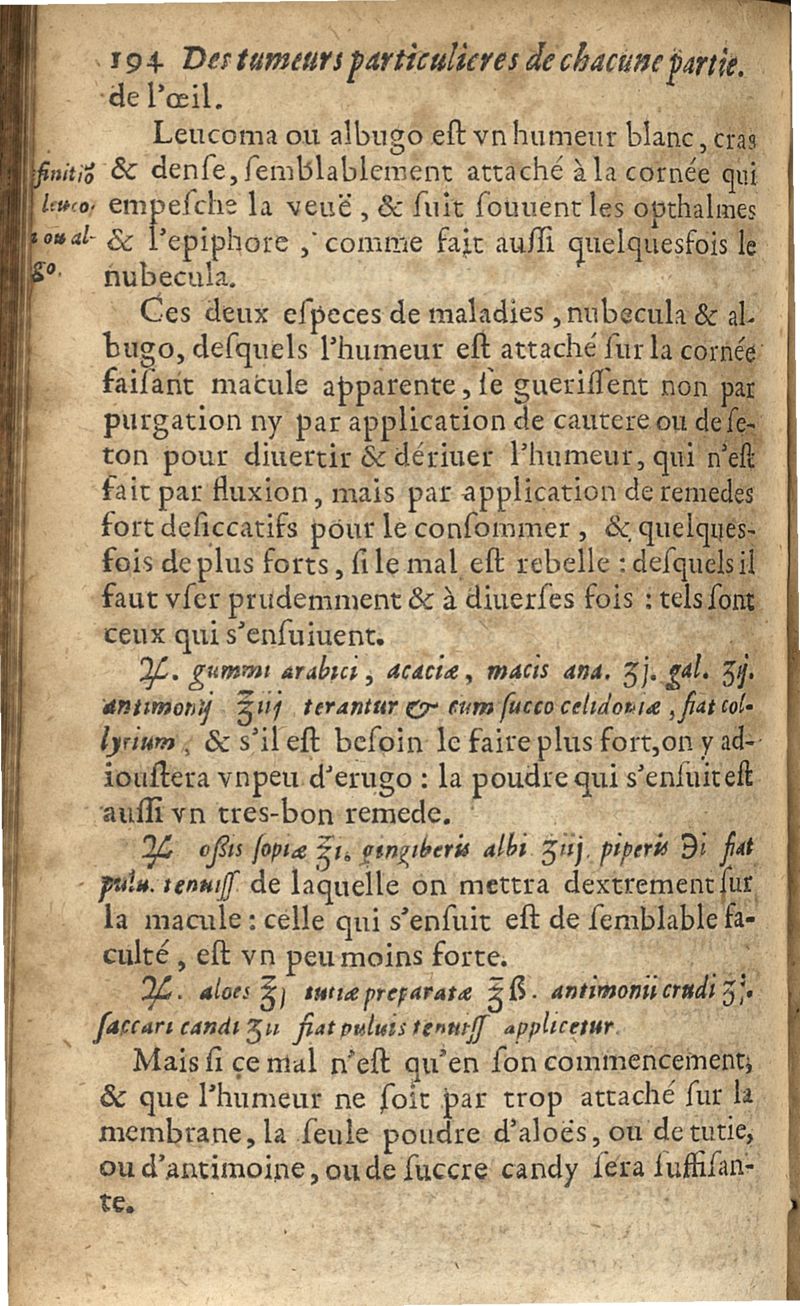 194 Des tumeurs particulieres de chacune partie.
de l'œil.
Leucoma ou albugo eſt vn humeur blanc, cras
& denſe, ſemblablement attaché à la cornée qui
empeſche la veuë, & ſuit ſouuent les opthalmes
& l'epiphore, comme fait auſſi quelquesfois le
nubecula.
finitiō
leuco-
ou al-
go.
Ces deux eſpeces de maladies, nubecula & al-
bugo, deſquels l'humeur eſt attaché ſur la cornée
faiſant macule apparente, ſe gueriſſent non par
purgation ny par application de cautere ou de ſe-
ton pour diuertir & dériuer l'humeur, qui n'eſt
fait par fluxion, mais par application de remedes
fort deſiccatifs pour le conſommer, & quelques-
fois de plus forts, ſi le mal eſt rebelle : deſquels il
faut vſer prudemment & à diuerſes fois : tels ſont
ceux qui s'enſuiuent.
℞. gummi arabici, acaciæ, macis ana. ʒj. gal. ʒij.
antimonij ℥iij terantur & cum ſucco celidoniæ, fiat col-
lyrium, & s'il eſt beſoin le faire plus fort, on y ad-
iouſtera vn peu d'erugo : la poudre qui s'enſuit eſt
auſſi vn tres-bon remede.
℞ oſsis ſopiæ ℥i. gingiberis albi ʒiij. piperis ℈i fiat
pulu. tenuiſſ de laquelle on mettra dextrement ſur
la macule : celle qui s'enſuit eſt de ſemblable fa-
culté, eſt vn peu moins forte.
℞. aloes ℥j tutiæ preparatæ ℥ß. antimonii crudi ʒj.
ſaccari candi ʒii fiat puluis tenuiſſ applicetur
Mais ſi ce mal n'eſt qu'en ſon commencement,
& que l'humeur ne ſoit par trop attaché ſur la
membrane, la ſeule poudre d'aloës, ou de tutie,
ou d'antimoine, ou de ſuccre candy ſera ſuffiſan-
te.